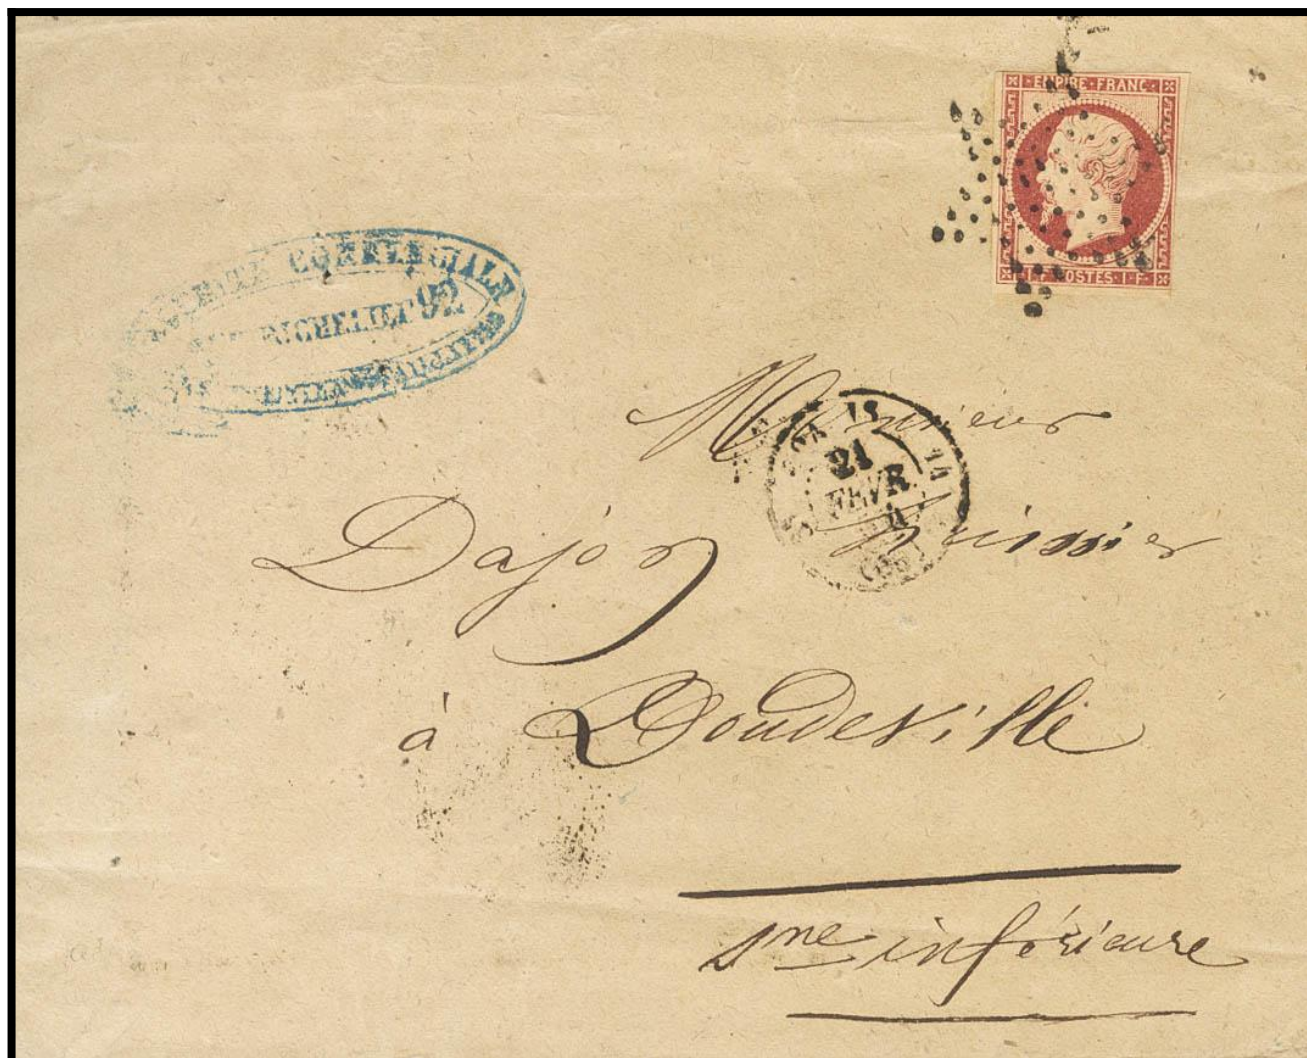 EMPIRE·FRANC·
1·F·POSTES·1·F·
COMMERCIALE
RICHELIEU 92
21
FEVR
(60)
Monsieur
Dajon huissier
à Doudeville
Sne inférieure